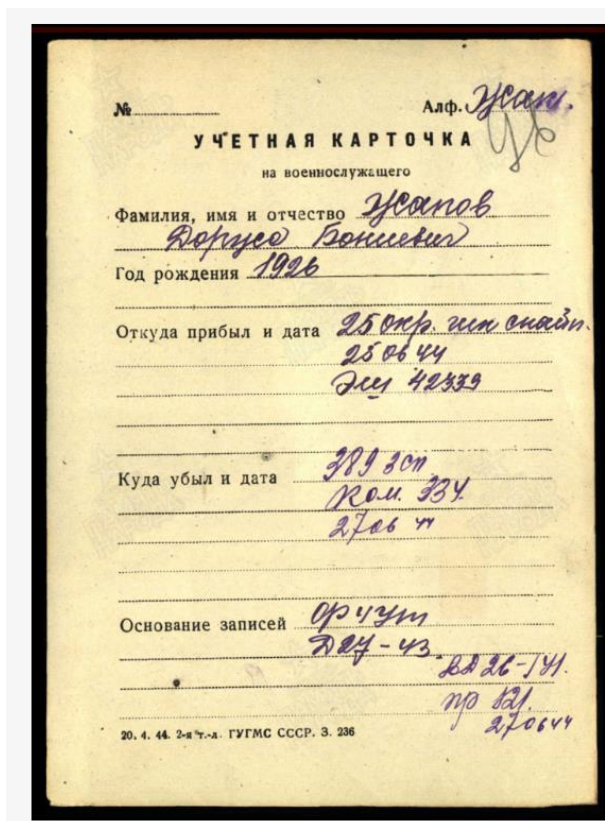 № Алф. Жап.
УЧЕТНАЯ КАРТОЧКА
на военнослужащего
Фамилия, имя и отчество Жапов
Доруго Бониевич
Год рождения 1926
Откуда прибыл и дата 25 окр. шк снайп.
25 06 44
Эш 42339
Куда убыл и дата 389 зсп
Ком. 334
27 06 44
Основание записей
Д 27-43
ВД 26-141.
пр 121.
27 06 44
20. 4. 44. 2-я т.-л. ГУГМС СССР. З. 236